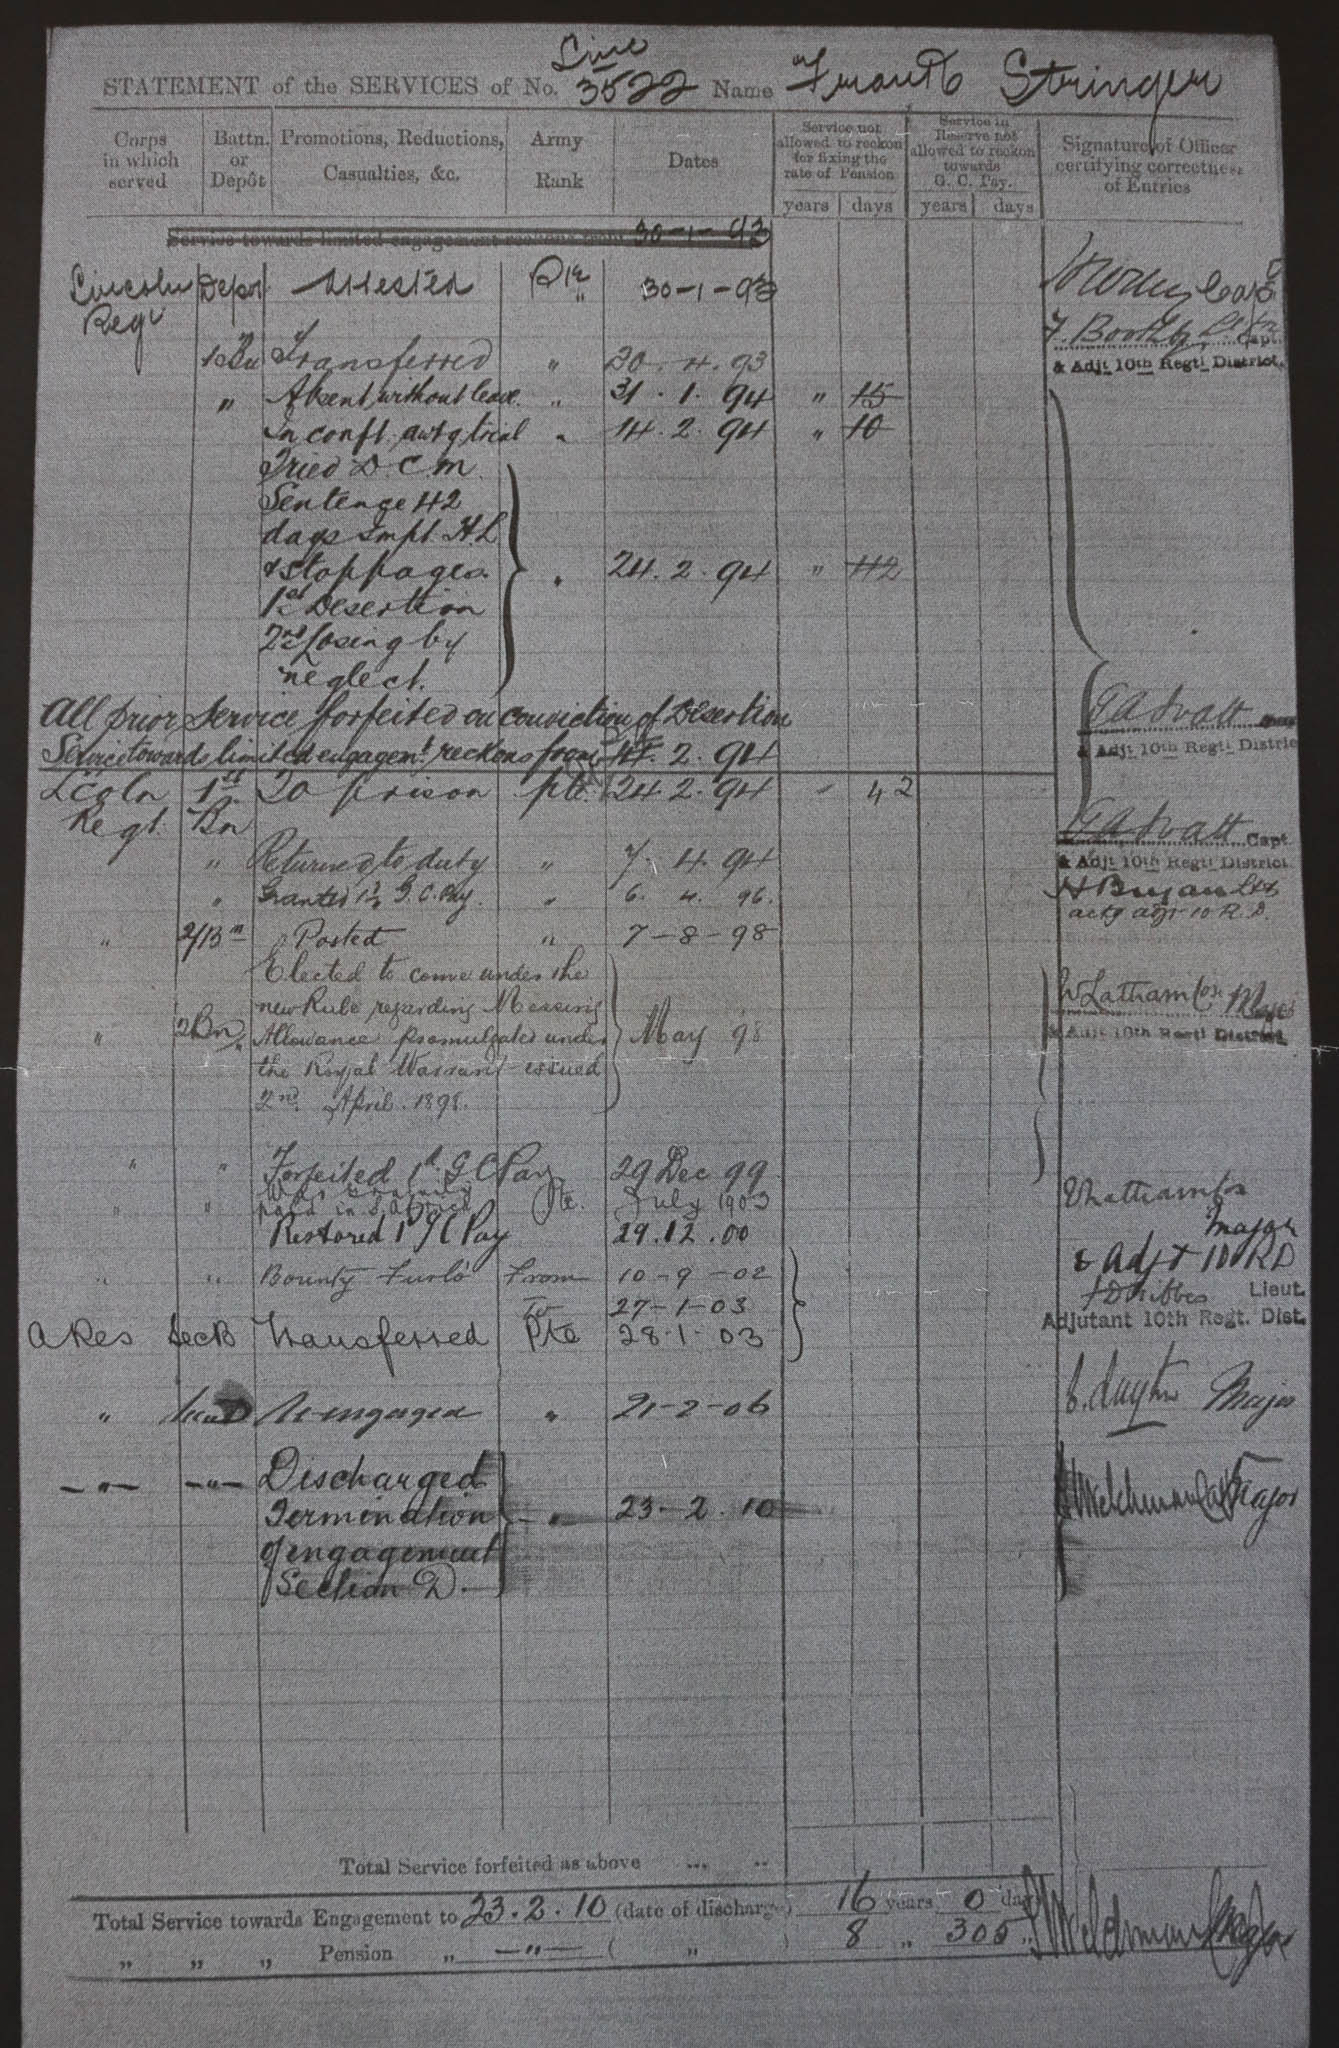 Linc
STATEMENT of the SERVICES of No. 3522 Name Frank Stringer
Corps in which served
Battn. or Depôt
Promotions, Reductions, Casualties, &c.
Army Rank
Dates
Service not allowed to reckon for fixing the rate of Pension
years days
Service in Reserve not allowed to reckon towards G. C. Pay.
years days
Signature of Officer certifying correctness of Entries
Service towards limited engagement reckons from 30-1-93
Lincoln Depot Attested Pte 30-1-93 Capt
Regt
F. Booth Capt.
1 Bn Transferred " 30.4.93 & Adjt 10th Regtl District.
" Absent without leave. " 31.1.94 " 15
In conft. awtg trial " 14.2.94 " 10
Tried D.C.M.
Sentence 42
days Impt. H.L
& stoppages " 24.2.94 " 42
1st Desertion
2nd Losing by
neglect.
All prior Service forfeited on conviction of Desertion
Service towards limited engagemt reckons from 24.2.94
& Adjt 10th Regtl District
Lcoln 1st To prison pte. 24.2.94 " 42
Regt Bn
Capt
" Returned to duty " 7.4.94 & Adjt 10th Regtl District
" Granted 1d G.C. Pay. " 6.4.96. H Bryan Ltt
actg adjt 10 R.D.
" 2/Bn Posted " 7-8-98
Elected to come under the
new Rule regarding Messing
" 2 Bn Allowance promulgated under May 98
the Royal Warrant issued
2nd April. 1898.
W Latham Major
& Adjt 10th Regtl District.
" " Forfeited 1d G C Pay 29 Dec 99
" " Was Gratuity
paid in S. Africa Pte. July 1903
Restored 1d G C Pay 29.12.00
Major
& Adjt 10 R D
" " Bounty Furlo' From 10-9-02
To 27-1-03
Lieut.
Adjutant 10th Regt. Dist.
A Res Sec B Transferred Pte 28-1-03
" Sec D Re-engaged " 21-2-06 Major
-"- -"- Discharged
Termination -"- 23-2.10
of engagement
Section D.
Welchman Major
Total Service forfeited as above ... ..
Total Service towards Engagement to 23.2.10 (date of discharge) 16 years 0 days
" " Pension " -"- ( " ) 8 " 305 "
Welchman Major